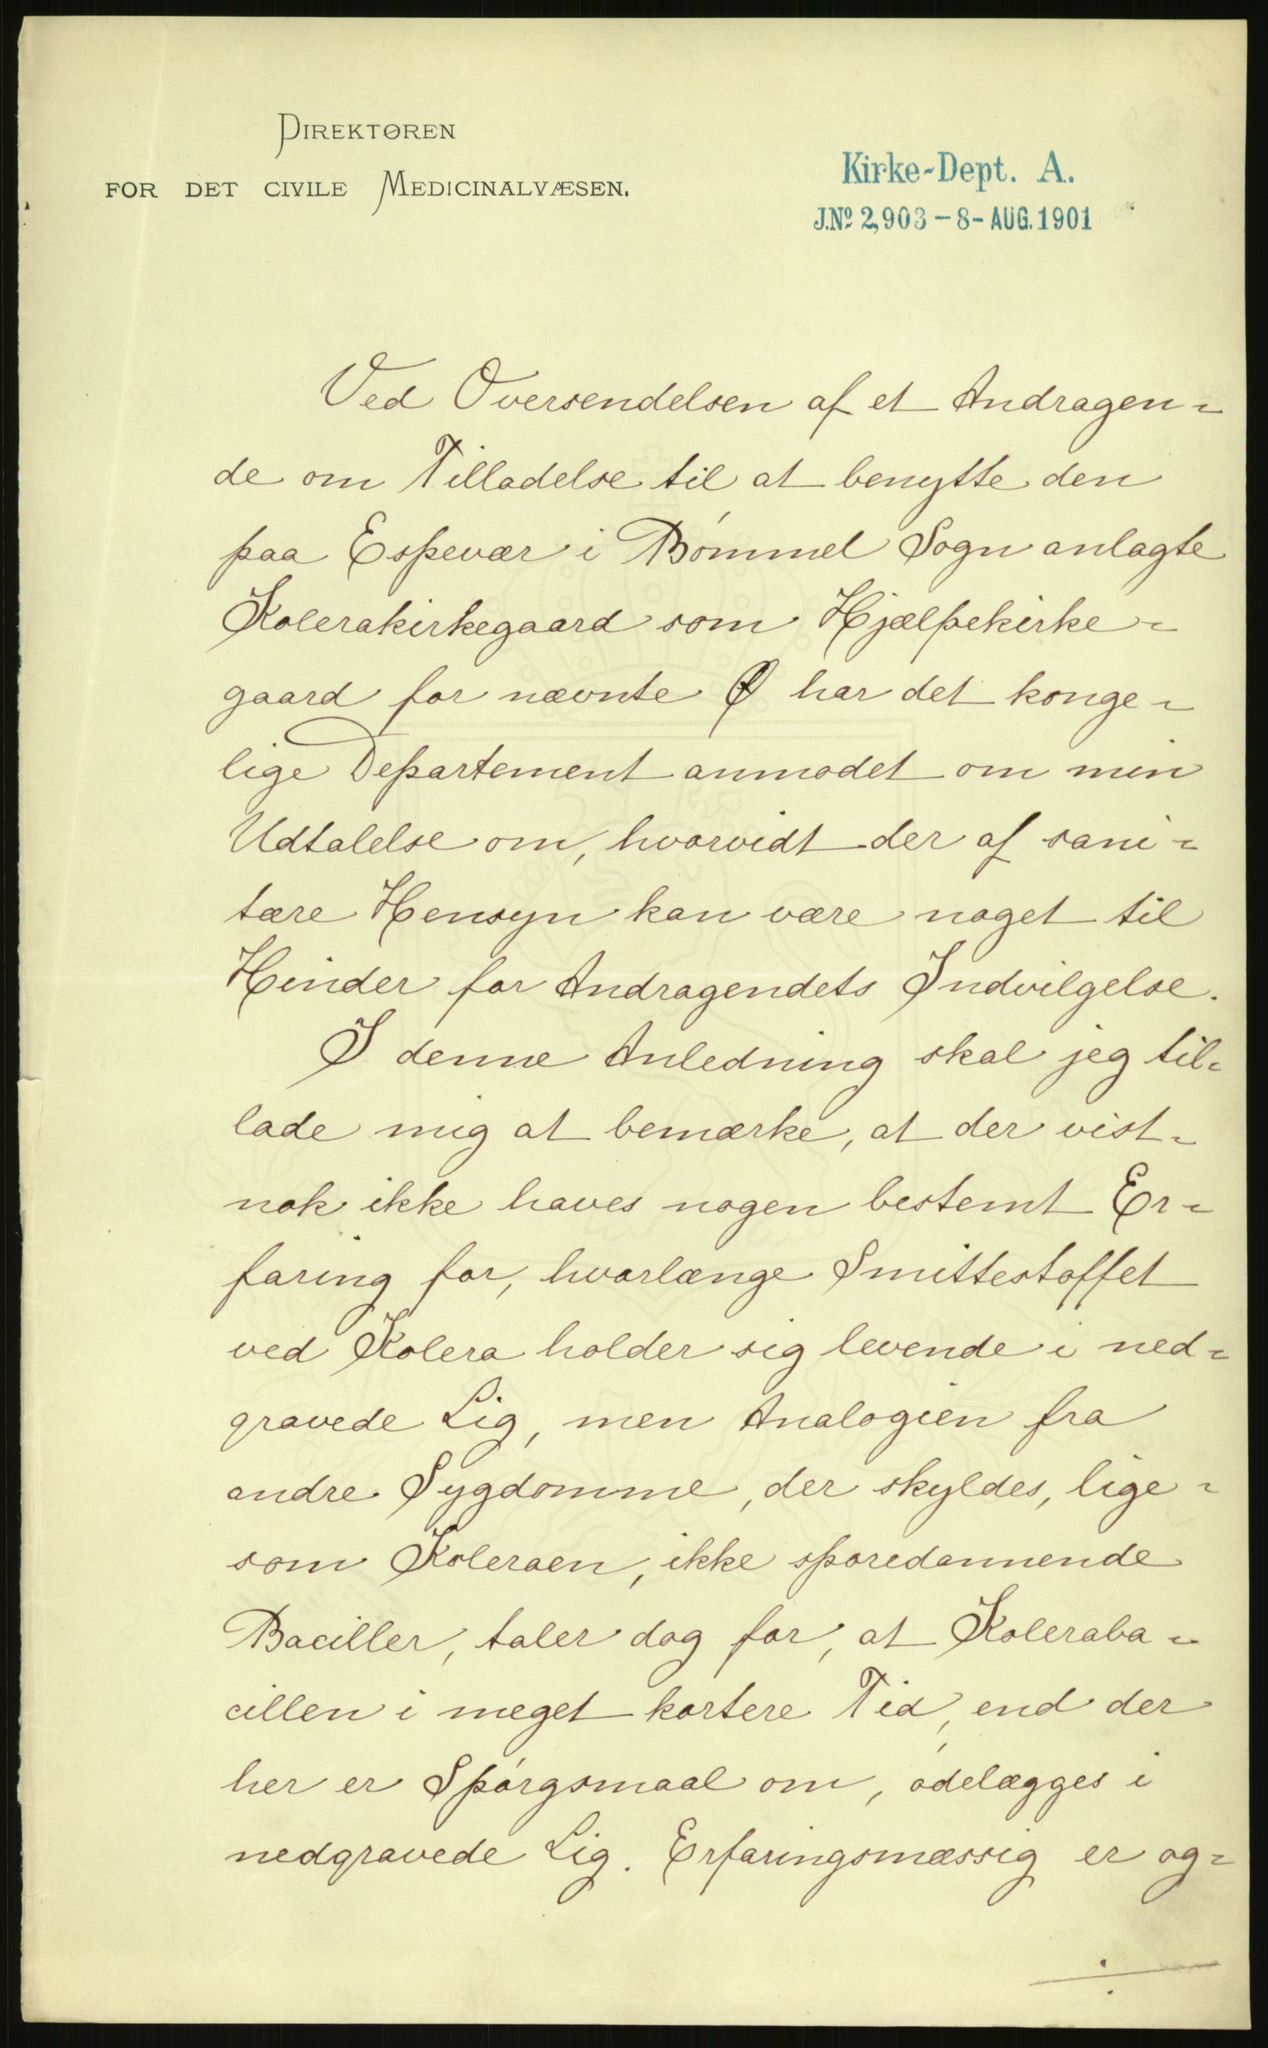 DIREKTØREN
FOR DET CIVILE MEDICINALVÆSEN.
Kirke-Dept. A.
J.Nº 2,903 - 8 - AUG. 1901
Ved Oversendelsen af et Andragen-
de om Tilladelse til at benytte den
paa Espevær i Bømmel Sogn anlagte
Kolerakirkegaard som Hjælpekirke-
gaard for nævnte Ø har det konge-
lige Departement anmodet om min
Udtalelse om, hvorvidt der af sani-
tære Hensyn kan være noget til
Hinder for Andragendets Indvilgelse.
I denne Anledning skal jeg til-
lade mig at bemærke, at der vist-
nok ikke haves nogen bestemt Er-
faring for, hvorlænge Smittestoffet
ved Kolera holder sig levende i ned-
gravede Lig, men Analogien fra
andre Sygdomme, der skyldes, lige-
som Koleraen, ikke sporedannende
Baciller, taler dog for, at Koleraba-
cillen i meget kortere Tid, end der
her er Spørgsmaal om, ødelægges i
nedgravede Lig. Erfaringsmæssig er og-